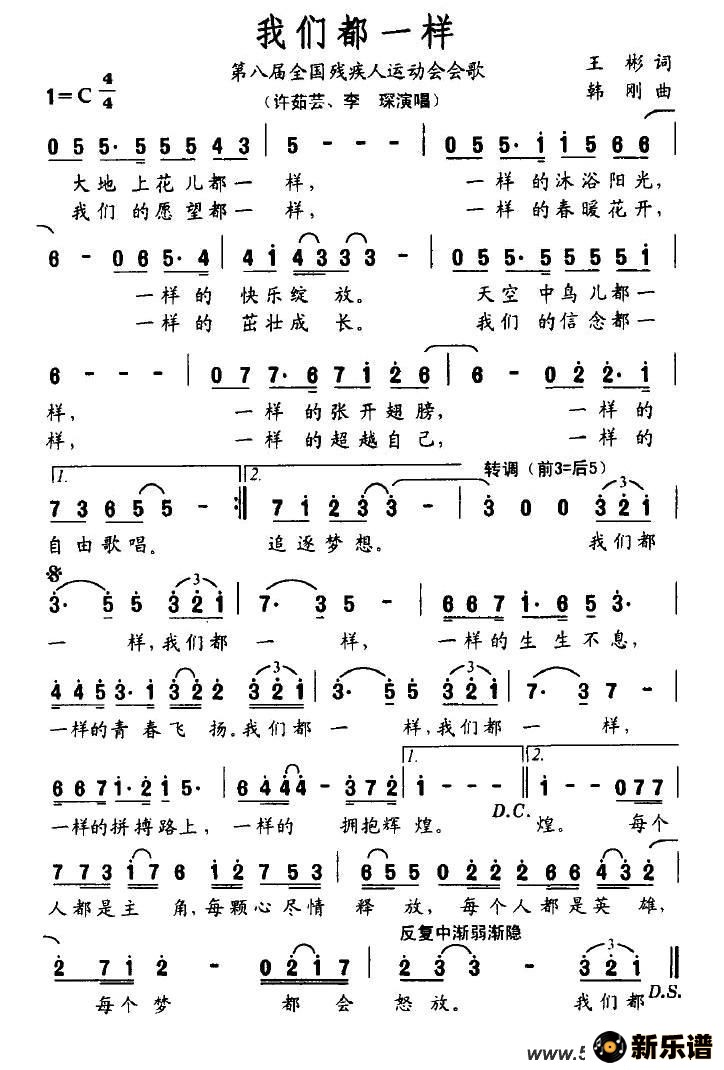 我们都一样
第八届全国残疾人运动会会歌
王 彬 词
1=C 4/4
(许茹芸、李 琛演唱)
韩 刚 曲
0 5 5· 5 5 5 5 4 3 | 5 - - - | 0 5 5· 1 1 5 6 6 |
大地 上花儿都一 样, 一样 的沐浴阳光,
我们 的愿望都一 样, 一样 的春暖花开,
6 - 0 6 5· 4 | 4 1 4 3 3 3 3 - | 0 5 5· 5 5 5 5 1 |
一样 的 快乐绽 放。 天空 中鸟儿都一
一样 的 茁壮成 长。 我们 的信念都一
6 - - - | 0 7 7· 6 7 1 2 6 | 6 - 0 2 2· 1 |
样, 一样 的张开翅膀, 一样 的
样, 一样 的超越自己, 一样 的
1. 2. 转调(前3=后5)
7 3 6 5 5 5 - :| 7 1 2 3 3 - | 3 0 0 3 2 1 |
自由歌唱。 追逐梦想。 我们都
3· 5 5 3 2 1 | 7· 3 5 - | 6 6 7 1· 6 5 3· |
一 样,我们都 一 样, 一样的生生不息,
4 4 5 3· 1 3 2 2 3 2 1 | 3· 5 5 3 2 1 | 7· 3 7 - |
一样的青春飞 扬。我们都 一 样,我们都 一 样,
1. 2.
6 6 7 1· 2 1 5· | 6 4 4 4 - 3 7 2 | 1 - - - || 1 - - 0 7 7 |
一样的拼搏路上, 一样的 拥抱辉 煌。 D.C. 煌。 每个
7 7 3 1 7 6 | 1 2 7 5 3 | 6 5 5 0 2 | 2 2 6 6 4 3 2 |
人都是主 角,每颗心尽情 释 放, 每个人都是英 雄,
反复中渐弱渐隐
2 7 1 2 - | 0 2 1 7 | 2 3 3 - | 3 2 1 ||
每个梦 都 会 怒放。 我们都 D.S.
www.5
新乐谱